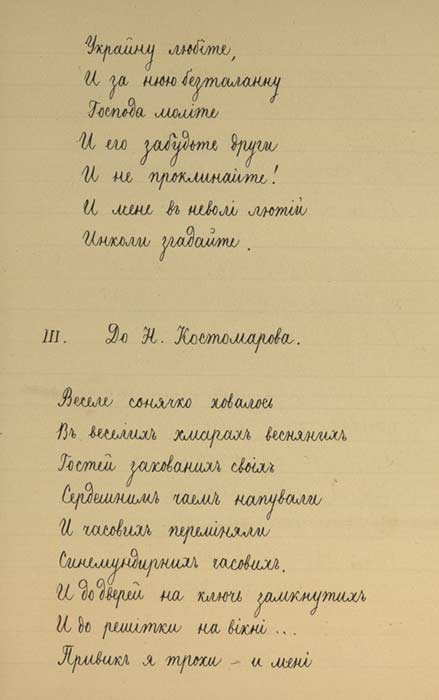 Украйну любіте,
И за нюю безталанну
Господа моліте
И его забудьте други
И не проклинайте!
И мене въ неволі лютій
Инколи згадайте.
III. До Н. Костомарова.
Веселе сонячко ховалось
Въ веселихъ хмарахъ весняних
Гостей закованихъ своіхъ
Сердешнимъ чаемъ напували
И часовихъ переміняли
Синемундирнихъ часовихъ.
И до дверей на ключь замкнутихъ
И до решітки на вікні...
Привикъ я трохи – и мені